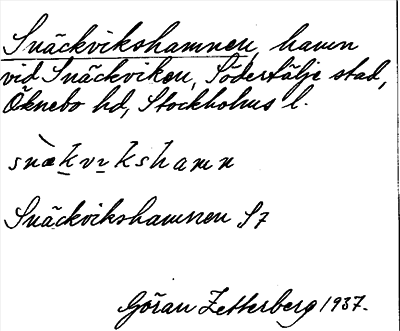 Snäckvikshamnen, hamn
vid Snäckviken, Södertälje stad,
Öknebo hd, Stockholms l.
snækvıkshamn
Snäckvikshamnen S7
Göran Zetterberg 1937.